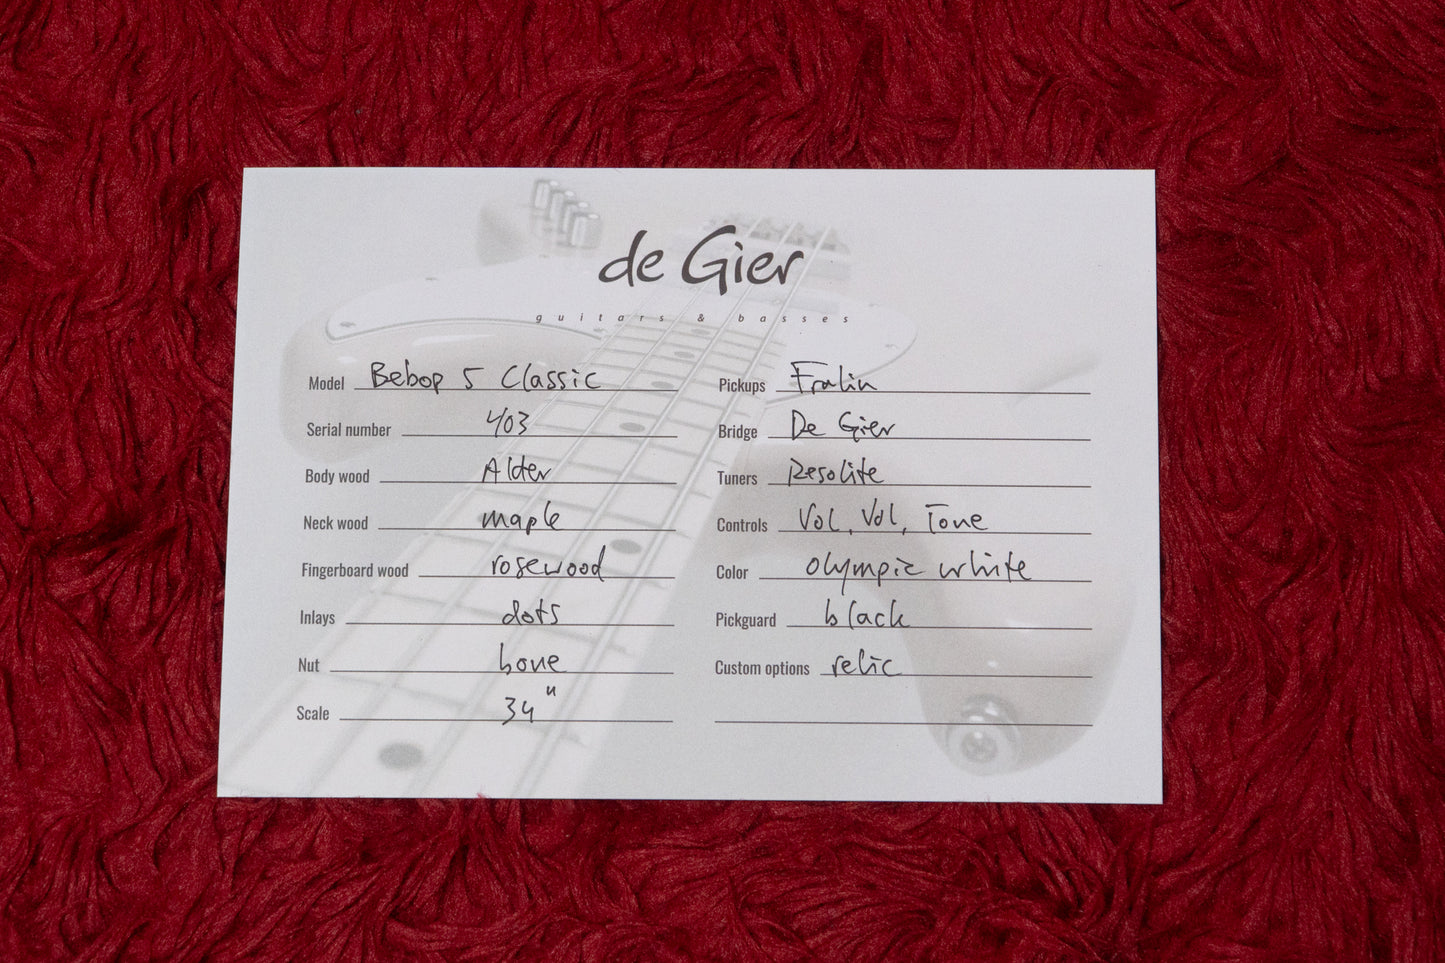 de Gier
guitars & basses
Model Bebop 5 Classic
Serial number 403
Body wood Alder
Neck wood maple
Fingerboard wood rosewood
Inlays dots
Nut bone
Scale 34"
Pickups Fralin
Bridge De Gier
Tuners Resolite
Controls Vol, Vol, Tone
Color Olympic white
Pickguard black
Custom options relic